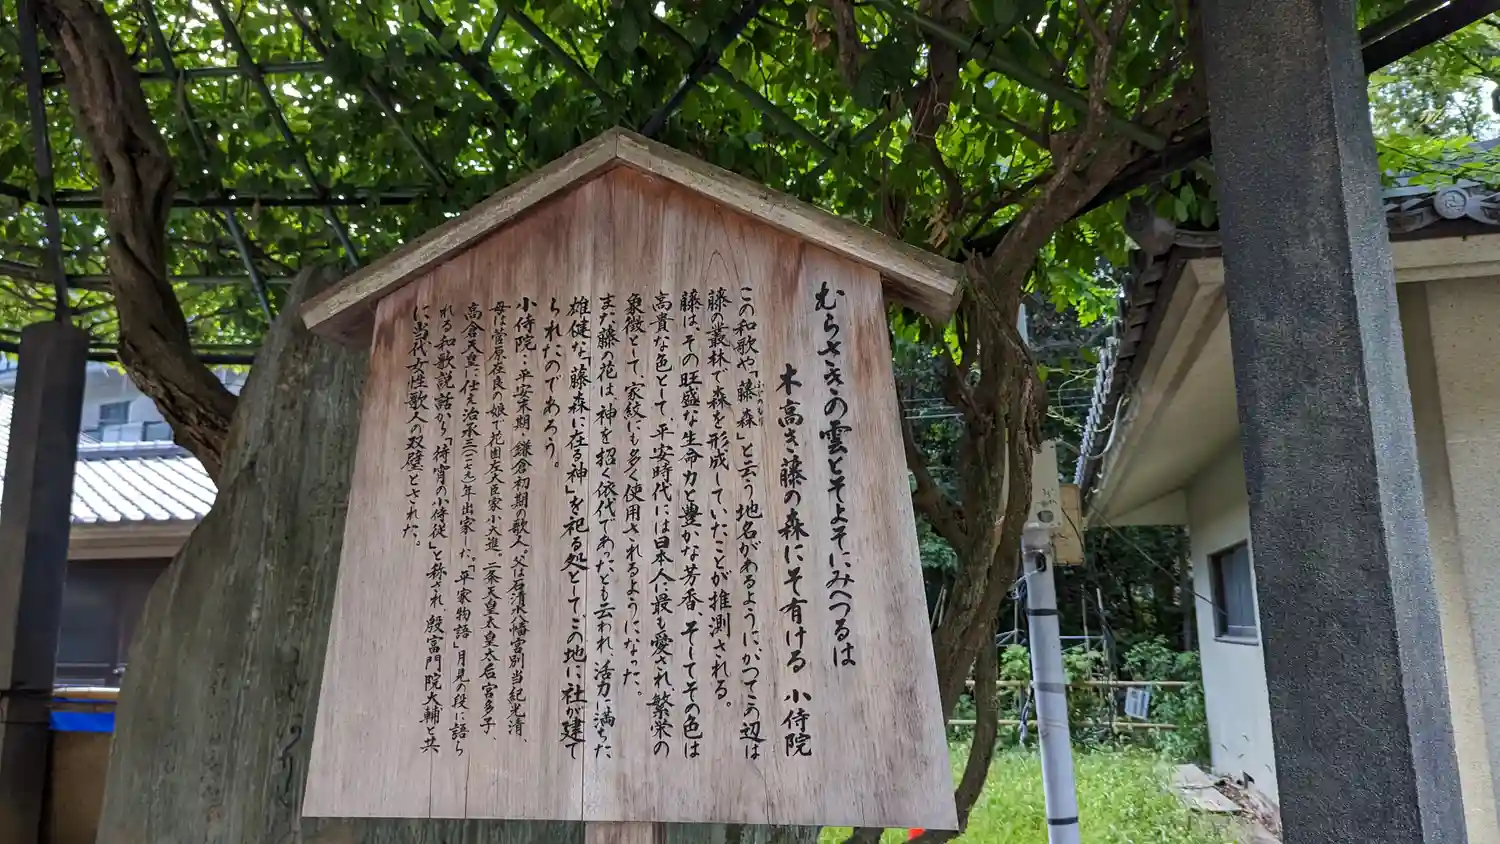 むらさきの雲とそよそにみへつるは
木高き藤の森にぞ有ける 小侍院
この和歌や「藤森」と云う地名があるように、かつてこの辺は
ふじのもり
藤の叢林で森を形成していたことが推測される。
藤は、その旺盛な生命力と豊かな芳香、そしてその色は
高貴な色として、平安時代には日本人に最も愛され繁栄の
象徴として、家紋にも多く使用されるようになった。
また藤の花は、神を招く依代であったとも云われ、活力に満ちた
雄健な「藤森に在る神」を祀る処として、この地に社が建て
られたのであろう。
小侍院…平安末期・鎌倉初期の歌人、父は石清水八幡宮別当紀光清、
母は菅原在良の娘で花園左大臣家小大進、二条天皇太皇太后宮多子、
高倉天皇に仕え治承三(一一七九)年出家した。「平家物語」月見の段に語ら
れる和歌説話から「待宵の小侍従」と称され、殷富門院大輔と共
に当代女性歌人の双璧とされた。